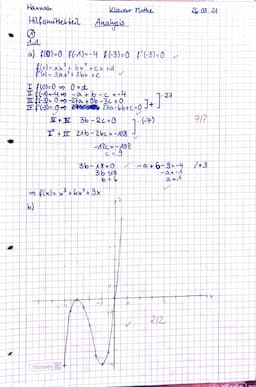 Hannah Klausur Mathe 26.03.21
Hilfsmittelteil Analysis
①
1.1
a) f(0)=0 f(-1)=-4 f(-3)=0 f'(-3)=0
f(x)=ax³+bx²+cx+d
f'(x)=3ax²+2bx+c
I f(0)=0 ⇒ 0=d
II f(-1)=-4 ⇒ -a+b-c=-4
III f(-3)=0 ⇒ -27a+9b-3c=0
IV f'(-3)=0 ⇒ 27a-6b+c=0
]+ ]·27
III+IV 3b-2c=0 ]·(-7)
7/7
-12c=-108
c=9
3b-18=0 -a+6-9=-4 /+3
3b=18 -a=-1
b=6 a=1
⇒ f(x)=x³+6x²+9x
b)
2/2